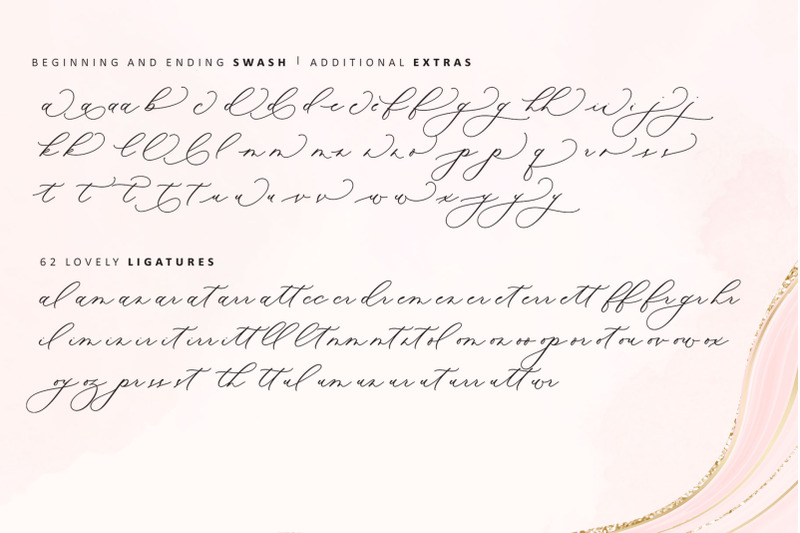 BEGINNING AND ENDING SWASH | ADDITIONAL EXTRAS
a a aa b c d d d e e e f f g g h h i i j j
k k l l l m m n n o p p q r r s s
t t t t t u u u v v w w x y y y
62 LOVELY LIGATURES
al am an ar at arr att ec er dr em en er et err ett ff fr gr hr
il im in ir it irr itt ll lt nm nt nt ol om on oo op or ot ou ov ow ox
oy oz pr ss st th tt ul um un ur ut urr utt wr